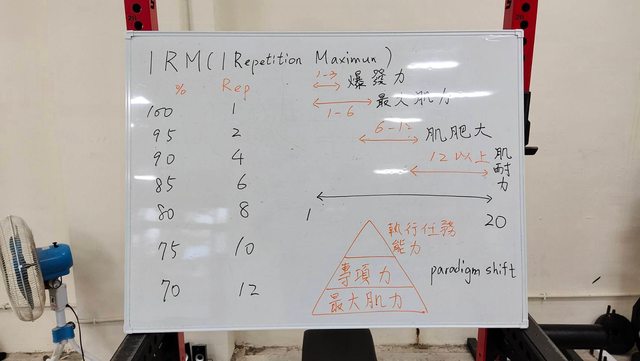 1RM(1 Repetition Maximun)
% Rep
100 1
95 2
90 4
85 6
80 8
75 10
70 12
1-3 爆發力
最大肌力
1-6
6-12 肌肥大
12以上 肌耐力
1 20
執行任務
能力
專項力
最大肌力
paradigm shift